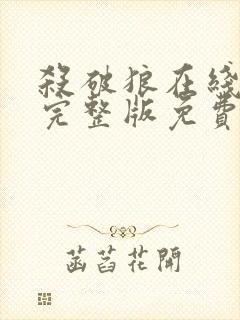 殺破狼在綫
完整版免費
菡萏花開